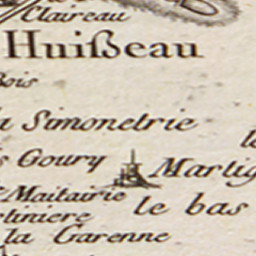 Claireau
Huißeau
Bois
Simonetrie
Goury
Martig
Maitairie
le bas
tiniere
la Garenne